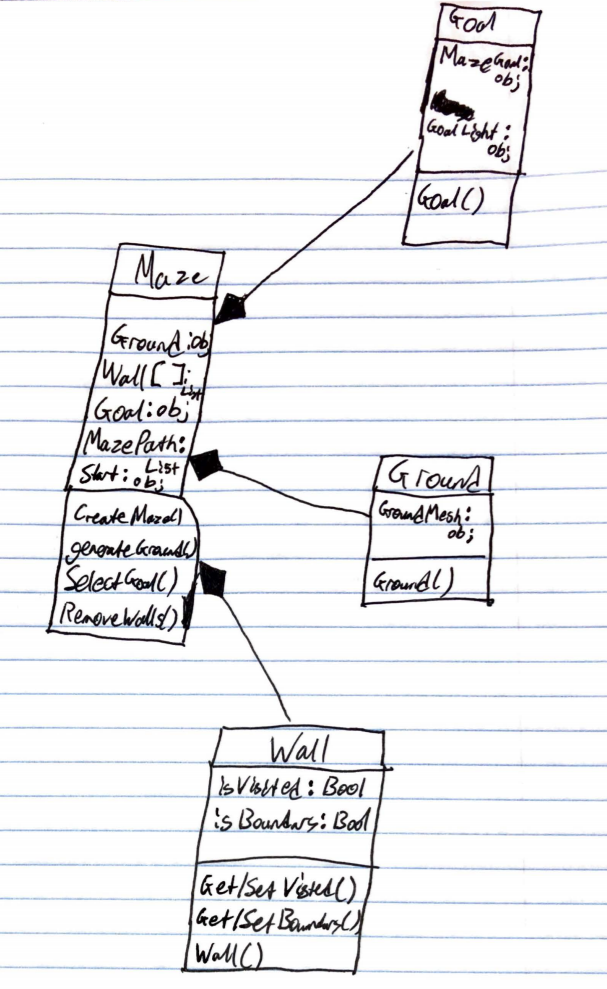 Goal
MazeGoal:
obj
GoalLight:
obj
Goal()
Maze
Ground:obj
Wall[ ]:
List
Goal:obj
MazePath:
List
Start: obj
CreateMaze()
generateGround()
SelectGoal()
RemoveWalls()
Ground
GroundMesh:
obj
Ground()
Wall
isVisited: Bool
isBoundary: Bool
Get/Set Visited()
Get/Set Boundary()
Wall()